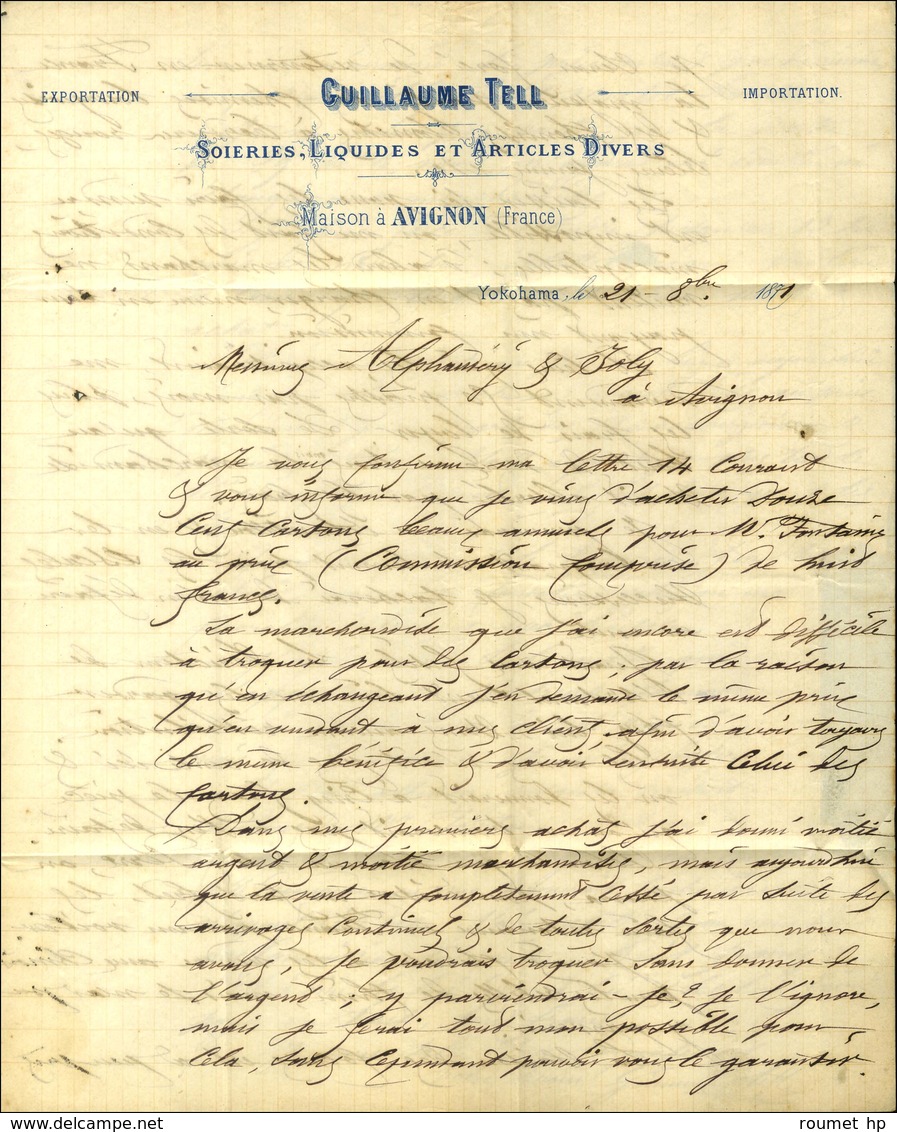 EXPORTATION
GUILLAUME TELL
IMPORTATION.
SOIERIES, LIQUIDES ET ARTICLES DIVERS
Maison à AVIGNON (France)
Yokohama, le 21 - 8bre 1871
Messieurs Alphandéry & Joly
à Avignon
Je vous confirme ma lettre 14 Courant
& vous informe que je viens d'acheter Douze
Cent Cartons beaux annuels pour Mr. Fontaine
au prix (Commission Comprise) de huit
francs.
La marchandise que j'ai encore est difficile
à troquer pour des Cartons ; par la raison
qu'en échangeant j'en demande le même prix
qu'en vendant à mes client afin d'avoir toujours
le même bénéfice & d'avoir ensuite Celui des
Cartons.
Dans mes premiers achats j'ai donné moitié
argent & moitié marchandises, mais aujourd'hui
que la vente a complètement Cessé par suite des
arrivages Continuels & de toutes sortes que nous
avons, je voudrais troquer sans donner de
l'argent ; y parviendrai-je ? Je l'ignore,
mais je ferai tout mon possible pour
Cela, sans Cependant pouvoir vous le garantir.
roumet hp